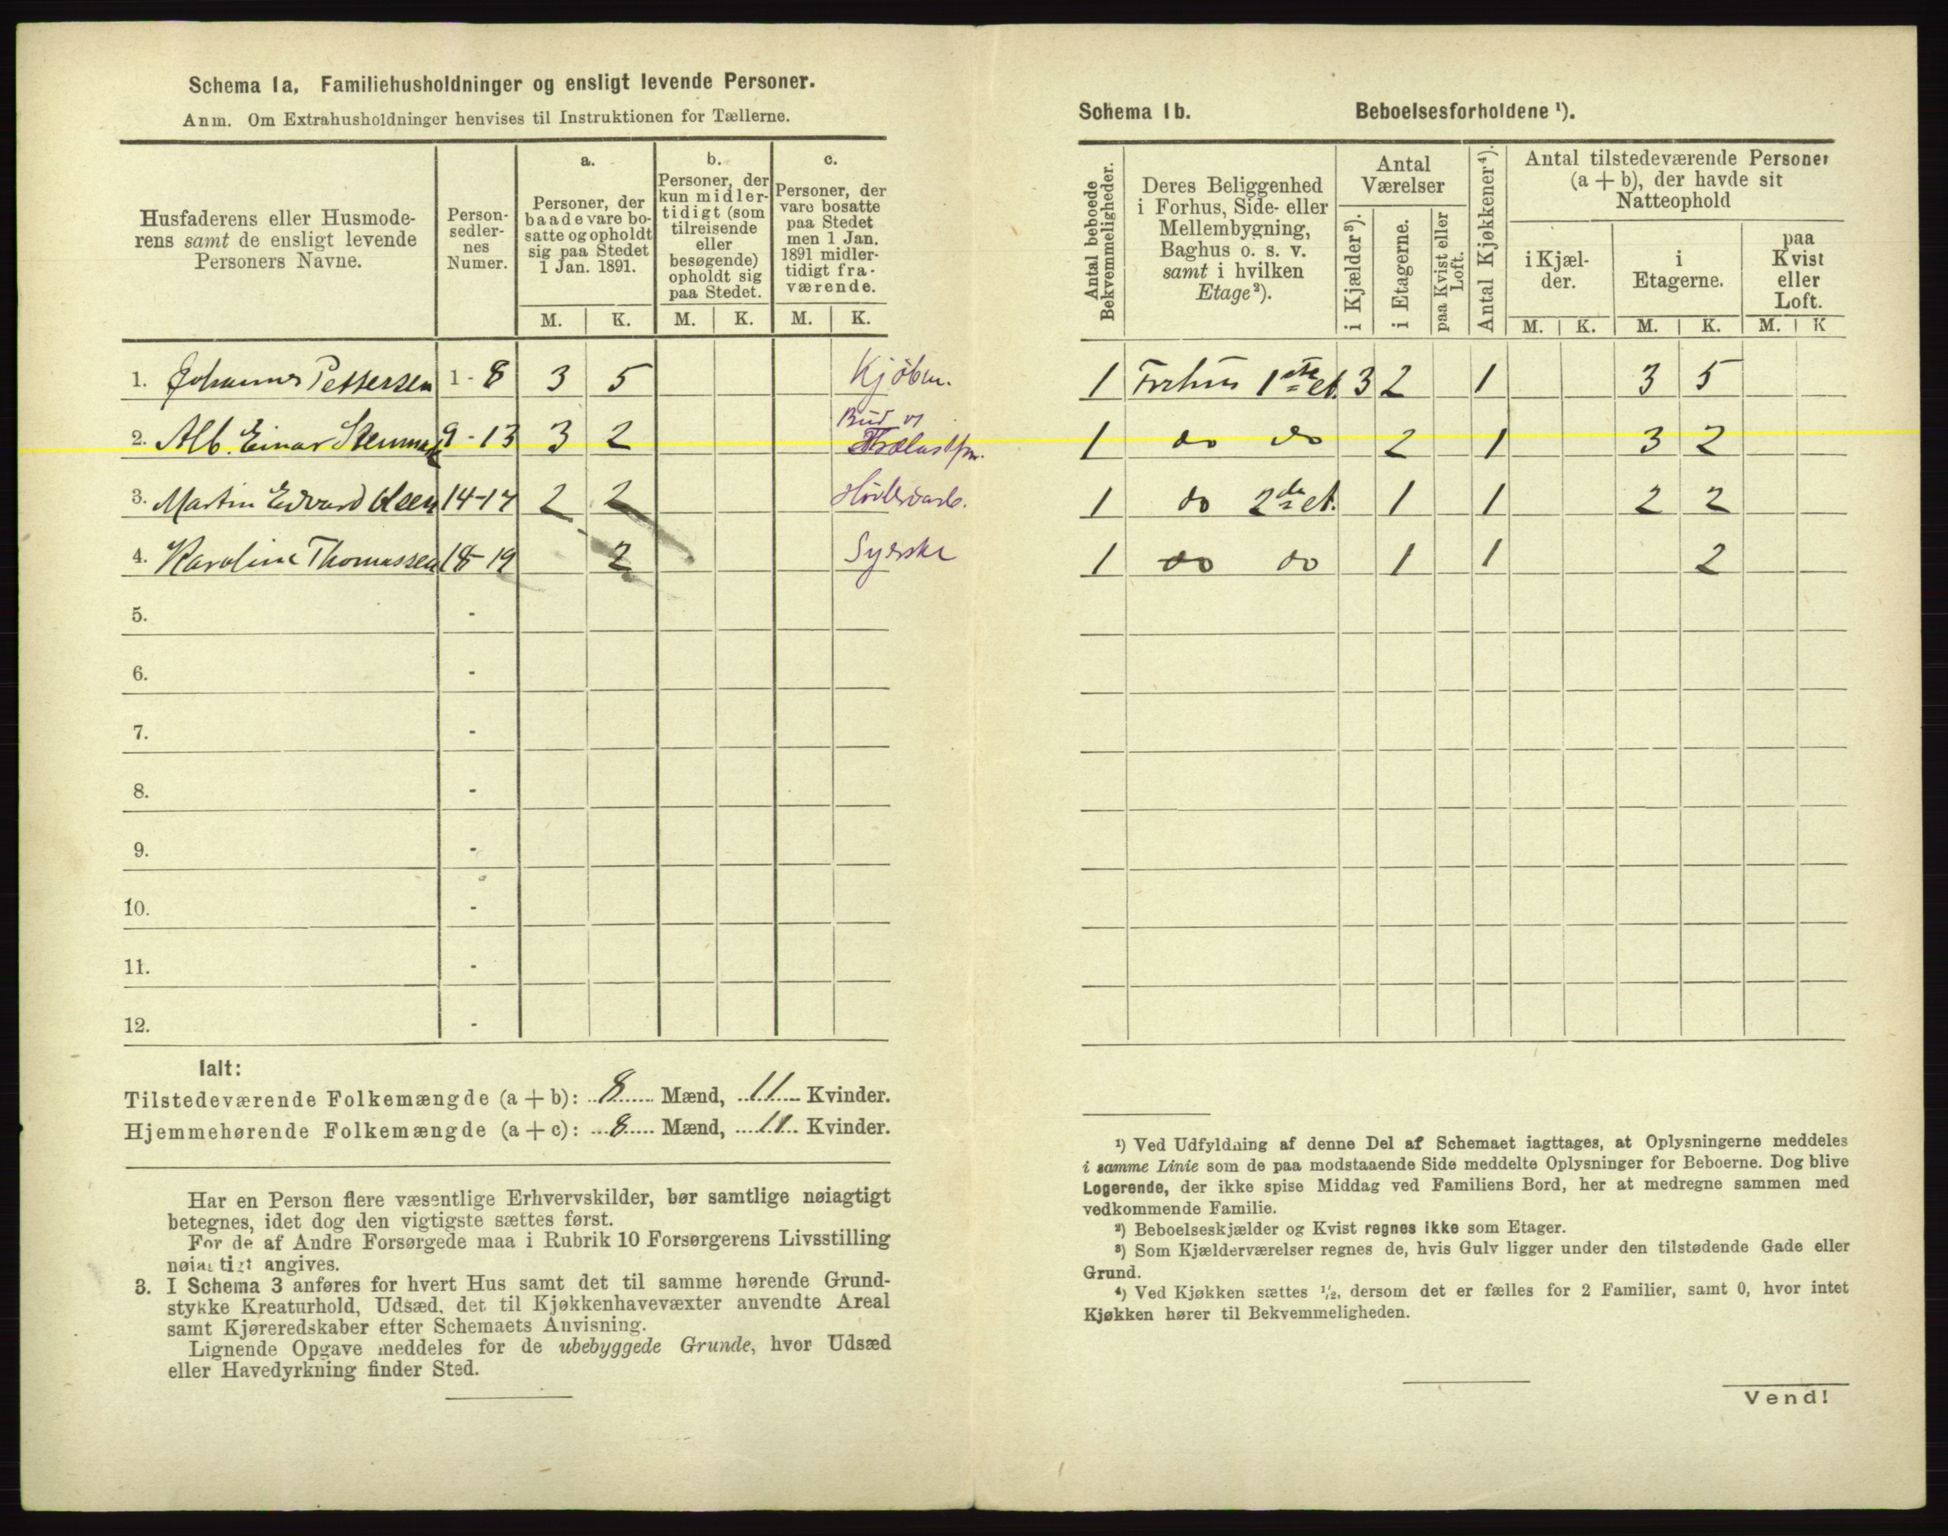 Schema 1a, Familiehusholdninger og ensligt levende Personer.
Anm. Om Extrahusholdninger henvises til Instruktionen for Tællerne.
Husfaderens eller Husmode-
rens samt de ensligt levende
Personers Navne.
Person-
sedler-
nes
Numer.
a.
Personer, der
baade vare bo-
satte og opholdt
sig paa Stedet
1 Jan. 1891.
b.
Personer, der
kun midler-
tidigt (som
tilreisende
eller
besøgende)
opholdt sig
paa Stedet.
c.
Personer, der
vare bosatte
paa Stedet
men 1 Jan.
1891 midler-
tidigt fra-
værende.
M. K. M. K. M. K.
1. Johannes Pettersen 1 - 8 3 5 Kjøbm.
2. Alb. Einar 9 - 13 3 2 Bud v
3. Martin Edvard Olsen 14-17 2 2
4. Karoline Thomassen 18-19 2 Syerske
5. -
6. -
7. -
8. -
9. -
10. -
11. -
12. -
Ialt:
Tilstedeværende Folkemængde (a + b): 8 Mænd, 11 Kvinder.
Hjemmehørende Folkemængde (a + c): 8 Mænd, 11 Kvinder.
Har en Person flere væsentlige Erhvervskilder, bør samtlige nøiagtigt
betegnes, idet dog den vigtigste sættes først.
For de af Andre Forsørgede maa i Rubrik 10 Forsørgerens Livsstilling
nøiagtigt angives.
3. I Schema 3 anføres for hvert Hus samt det til samme hørende Grund-
stykke Kreaturhold, Udsæd, det til Kjøkkenhavevæxter anvendte Areal
samt Kjøreredskaber efter Schemaets Anvisning.
Lignende Opgave meddeles for de ubebyggede Grunde, hvor Udsæd
eller Havedyrkning finder Sted.
Schema 1b. Beboelsesforholdene ¹).
Antal beboede
Bekvemmeligheder.
Deres Beliggenhed
i Forhus, Side- eller
Mellembygning,
Baghus o. s. v.
samt i hvilken
Etage²).
Antal
Værelser
i Kjælder³).
i Etagerne.
paa Kvist eller
Loft.
Antal Kjøkkener⁴).
Antal tilstedeværende Personer
(a + b), der havde sit
Natteophold
i Kjæl-
der.
i
Etagerne.
paa
Kvist
eller
Loft.
M. K. M. K. M. K
1 Forhus 1ste et. 3 2 1 3 5
1 do do 2 1 3 2
1 do 2de et. 1 1 2 2
1 do do 1 1 2
¹) Ved Udfyldning af denne Del af Schemaet iagttages, at Oplysningerne meddeles
i samme Linie som de paa modstaaende Side meddelte Oplysninger for Beboerne. Dog blive
Logerende, der ikke spise Middag ved Familiens Bord, her at medregne sammen med
vedkommende Familie.
²) Beboelseskjælder og Kvist regnes ikke som Etager.
³) Som Kjælderværelser regnes de, hvis Gulv ligger under den tilstødende Gade eller
Grund.
⁴) Ved Kjøkken sættes ½, dersom det er fælles for 2 Familier, samt 0, hvor intet
Kjøkken hører til Bekvemmeligheden.
Vend!